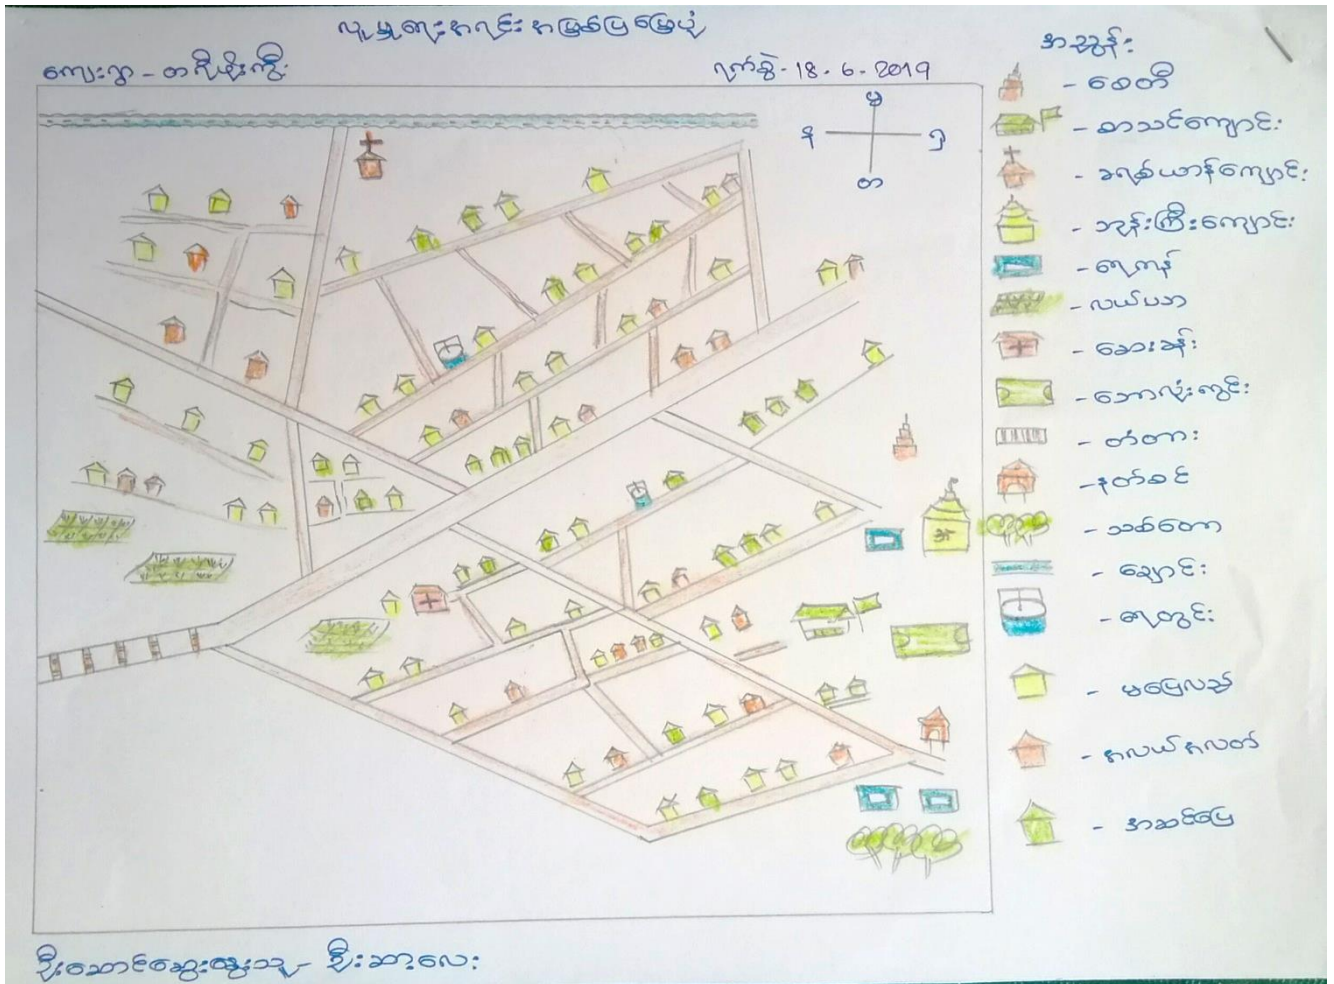 လူမှုရေးအရင်းအမြစ်ပြမြေပုံ
ကျေးရွာ - တလိုင်းကြီး
ရက်စွဲ - 18 . 6 . 2019
မ
န
ဂု
တ
အညွှန်း
- စေတီ
- စာသင်ကျောင်း
- ခရစ်ယာန်ကျောင်း
- ဘုန်းကြီးကျောင်း
- ရေကန်
- လယ်ယာ
- ဆေးခန်း
- ဘောလုံးကွင်း
- တံတား
- နတ်စင်
- သစ်တော
- ချောင်း
- ရေတွင်း
- မပြေလည်
- အလယ်အလတ်
- အဆင်ပြေ
ဦးဆောင်ဆွေးနွေးသူ - ဦးဆာလေး